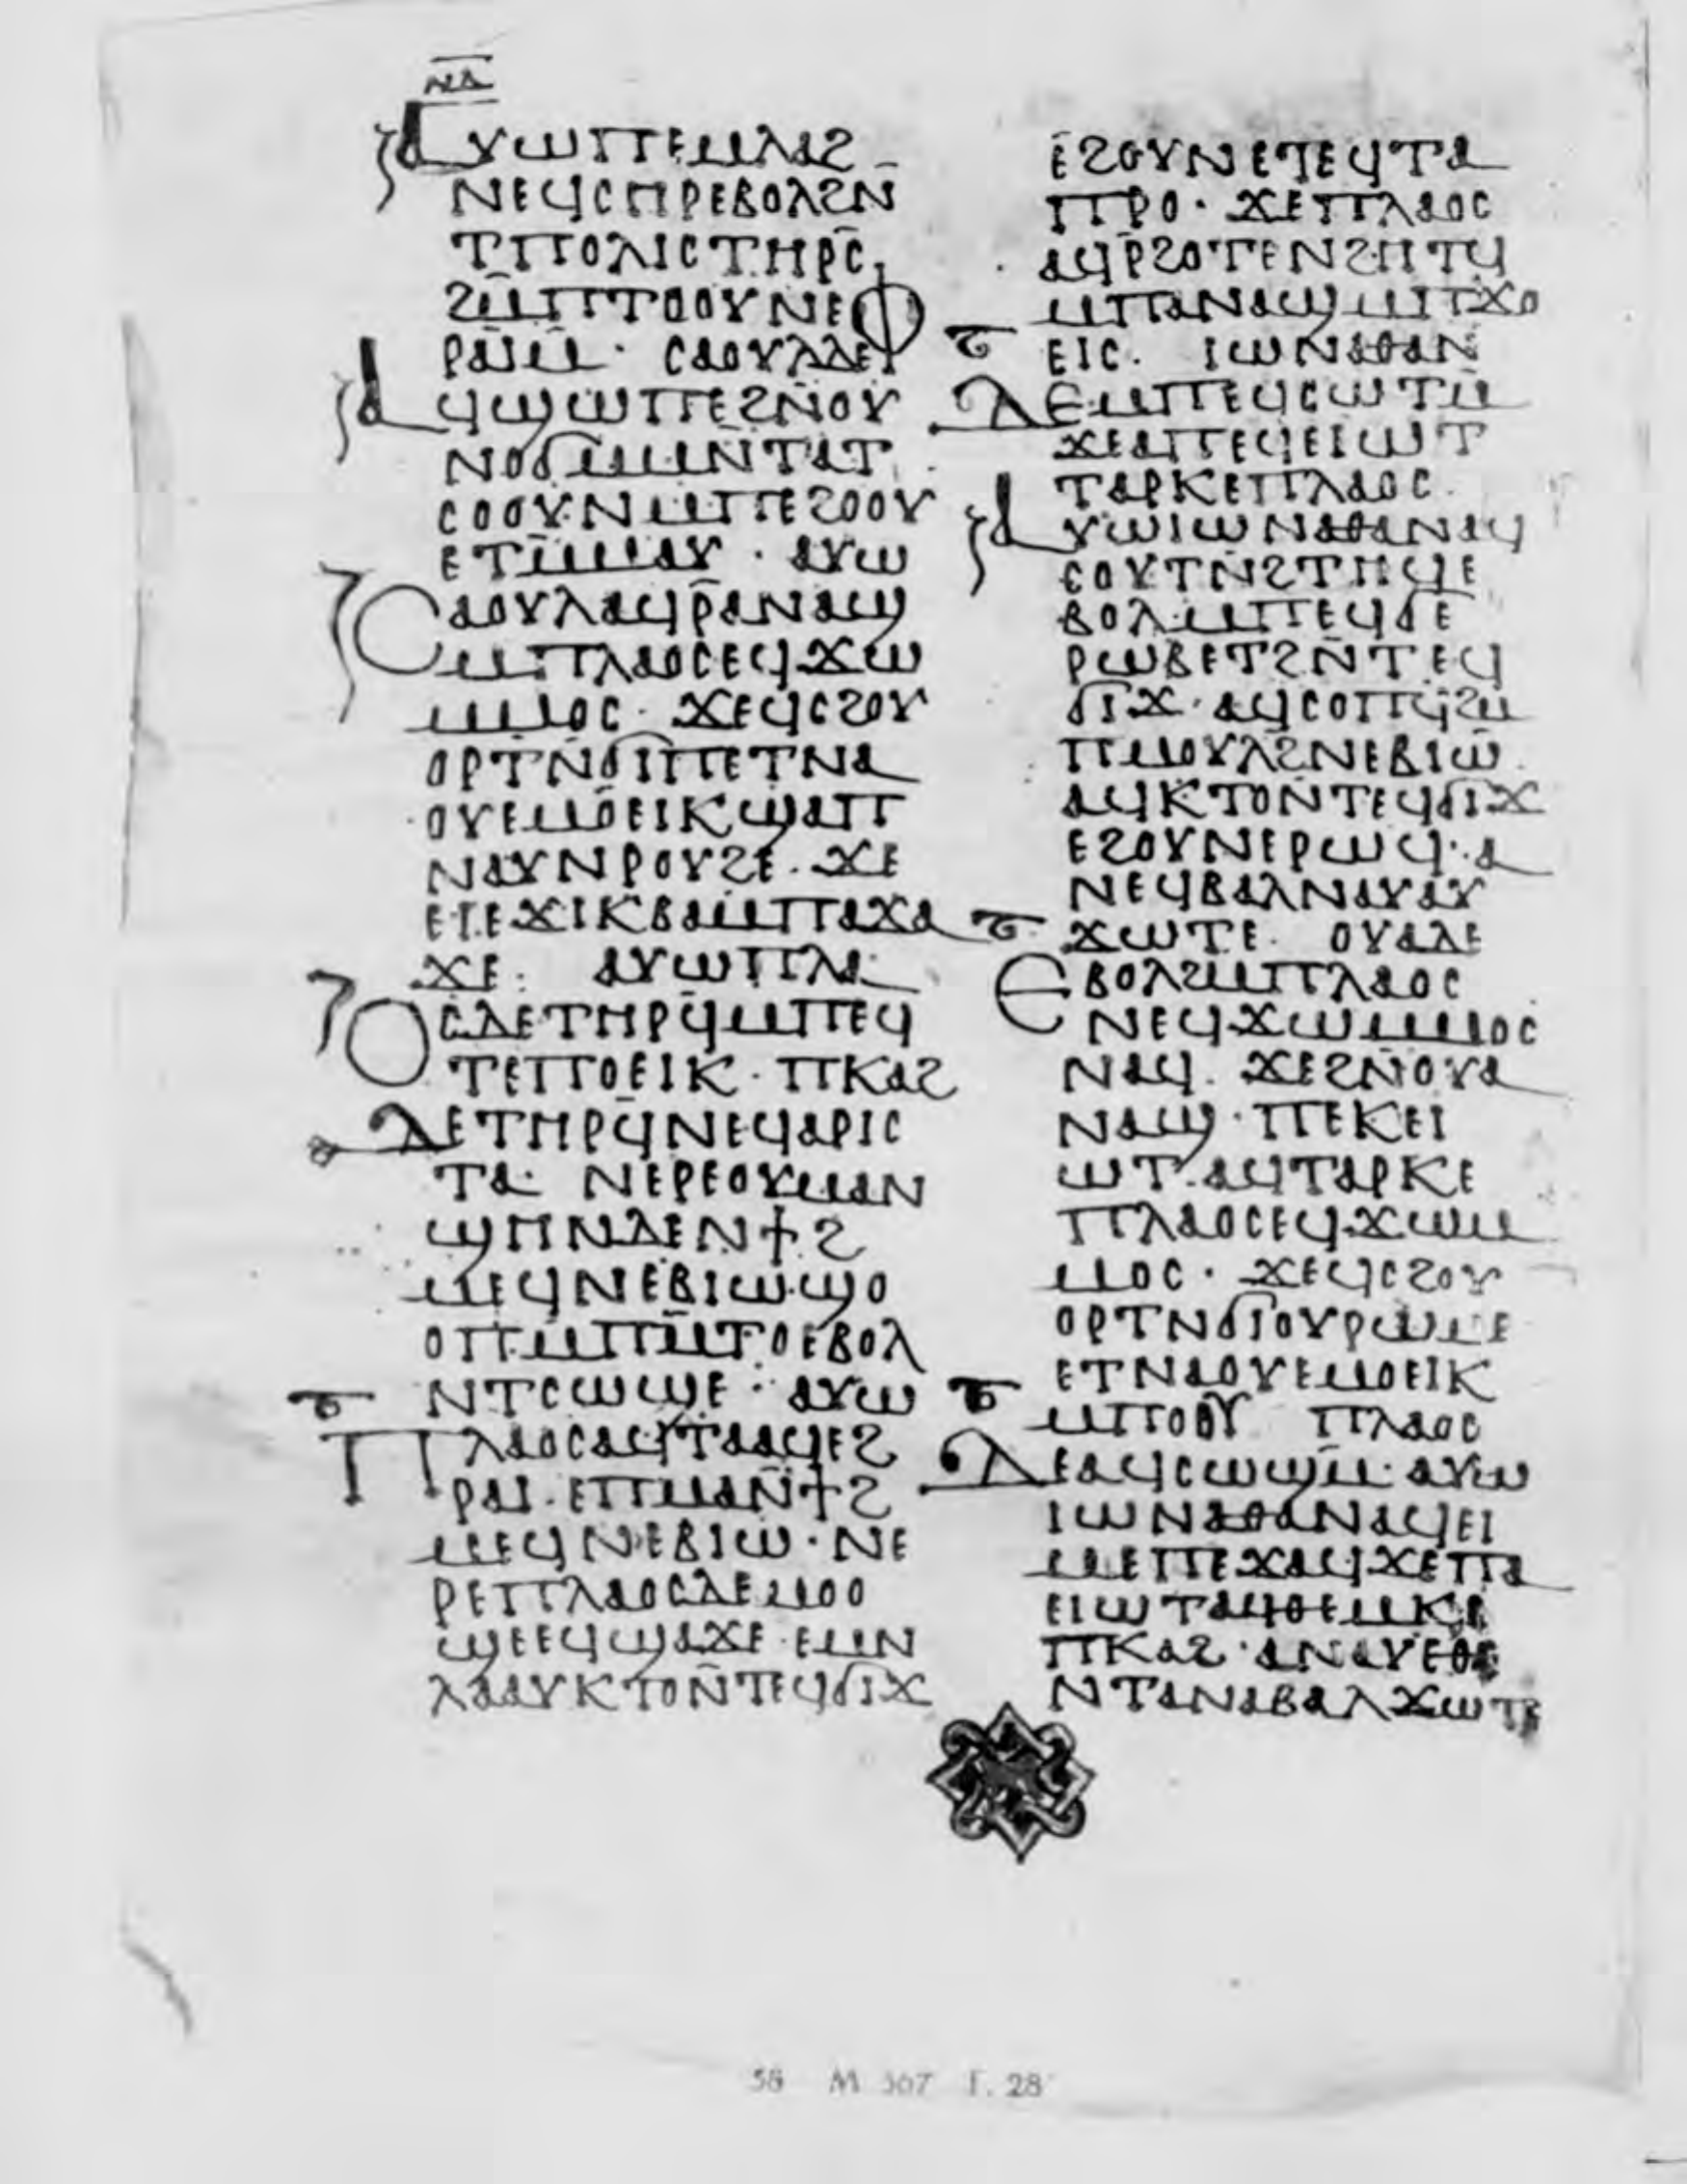 ⲛⲇ
ⲁⲩⲱⲡⲉⲙⲗⲁϩ
ⲛⲉϥⲥⲏⲣⲉⲃⲟⲗϩⲛ̄
ⲧⲡⲟⲗⲓⲥⲧⲏⲣⲥ̄
ϩⲙ̄ⲡⲧⲟⲟⲩⲛⲉⲫ
ⲣⲁⲓⲙ· ⲥⲁⲟⲩⲗⲇⲉ
ⲁϥϣⲱⲡⲉϩⲛ̄ⲟⲩ
ⲛⲟϭⲙ̄ⲙⲛ̄ⲧⲁⲧ
ⲥⲟⲟⲩⲛⲙ̄ⲡⲉϩⲟⲟⲩ
ⲉⲧⲙ̄ⲙⲁⲩ· ⲁⲩⲱ
ⲥⲁⲟⲩⲗⲁϥⲣ̄ⲁⲛⲁϣ
ⲙ̄ⲡⲗⲁⲟⲥⲉϥϫⲱ
ⲙ̄ⲙⲟⲥ· ϫⲉϥⲥϩⲟⲩ
ⲟⲣⲧⲛ̄ϭⲓⲡⲉⲧⲛⲁ
ⲟⲩⲉⲙⲟⲉⲓⲕϣⲁⲡ
ⲛⲁⲩⲛⲣⲟⲩϩⲉ· ϫⲉ
ⲉⲓⲉϫⲓⲕⲃⲁⲙ̄ⲡⲁϫⲁ
ϫⲉ: ⲁⲩⲱⲡⲗⲁ
ⲟⲥⲇⲉⲧⲏⲣϥ̄ⲙ̄ⲡⲉϥ
ⲧⲉⲡⲟⲉⲓⲕ· ⲡⲕⲁϩ
ⲇⲉⲧⲏⲣϥ̄ⲛⲉϥⲁⲣⲓⲥ
ⲧⲁ· ⲛⲉⲣⲉⲟⲩⲙⲁⲛ
ϣⲏⲛⲇⲉⲛϯϩ
ⲙⲉϥⲛⲉⲃⲓⲱ·ϣⲟ
ⲟⲡⲙ̄ⲡⲙ̄ⲧⲟⲉⲃⲟⲗ
ⲛⲧⲥⲱϣⲉ· ⲁⲩⲱ
ⲡⲗⲁⲟⲥⲁϥⲧⲁⲁϥⲉϩ
ⲣⲁⲓ·ⲉⲡⲙⲁⲛ̄ϯϩ
ⲙⲉϥⲛⲉⲃⲓⲱ· ⲛⲉ
ⲣⲉⲡⲗⲁⲟⲥⲇⲉⲙⲟⲟ
ϣⲉⲉϥϣⲁϫⲉ·ⲉⲙⲛ
ⲗⲁⲁⲩⲕⲧⲟⲛ̄ⲧⲉϥϭⲓϫ
ⲉϩⲟⲩⲛⲉⲧⲉϥⲧⲁ
ⲡⲣⲟ· ϫⲉⲡⲗⲁⲟⲥ
ⲁϥⲣ̄ϩⲟⲧⲉⲛϩⲏⲧϥ
ⲙⲡⲁⲛⲁϣⲙ̄ⲡϫⲟ
ⲉⲓⲥ· ⲓⲱⲛⲁⲑⲁⲛ
ⲇⲉⲙⲡⲉϥⲥⲱⲧⲙ̄
ϫⲉⲁⲡⲉϥⲉⲓⲱⲧ
ⲧⲁⲣⲕⲉⲡⲗⲁⲟⲥ·
ⲁⲩⲱⲓⲱⲛⲁⲑⲁⲛⲁϥ
ⲥⲟⲩⲧⲛ̄ϩⲧⲏϥⲉ
ⲃⲟⲗⲙ̄ⲡⲉϥϭⲉ
ⲣⲱⲃⲉⲧϩⲛ̄ⲧⲉϥ
ϭⲓϫ· ⲁϥⲥⲟⲡϥ̄ϩⲙ
ⲡⲙⲟⲩⲗϩⲛⲉⲃⲓⲱ·
ⲁϥⲕⲧⲟⲛ̄ⲧⲉϥϭⲓϫ
ⲉϩⲟⲩⲛⲉⲣⲱϥ·ⲁ
ⲛⲉϥⲃⲁⲗⲛⲁⲩⲁⲩ
ϫⲱⲧⲉ· ⲟⲩⲁⲇⲉ
ⲉⲃⲟⲗϩⲙⲡⲗⲁⲟⲥ
ⲛⲉϥϫⲱⲙ̄ⲙⲟⲥ
ⲛⲁϥ· ϫⲉϩⲛ̄ⲟⲩⲁ
ⲛⲁϣ·ⲡⲉⲕⲉⲓ
ⲱⲧ·ⲁϥⲧⲁⲣⲕⲉ
ⲡⲗⲁⲟⲥⲉϥϫⲱⲙ
ⲙⲟⲥ· ϫⲉϥⲥϩⲟⲩ
ⲟⲣⲧⲛϭⲓⲟⲩⲣⲱⲙⲉ
ⲉⲧⲛⲁⲟⲩⲉⲙⲟⲉⲓⲕ
ⲙ̄ⲡⲟⲟⲩ ⲡⲗⲁⲟⲥ
ⲇⲉⲁϥⲥⲱϣⲙ̄·ⲁⲩⲱ
ⲓⲱⲛⲁⲑⲁⲛⲁϥⲉⲓ
ⲙⲉⲡⲉϫⲁϥϫⲉⲡⲁ
ⲉⲓⲱⲧⲁϥⲑⲉⲙⲕⲉ
ⲡⲕⲁϩ·ⲁⲛⲁⲩⲉⲑⲉ
ⲛⲧⲁⲛⲁⲃⲁⲗϫⲱⲧⲉ
58 M 567 F. 28